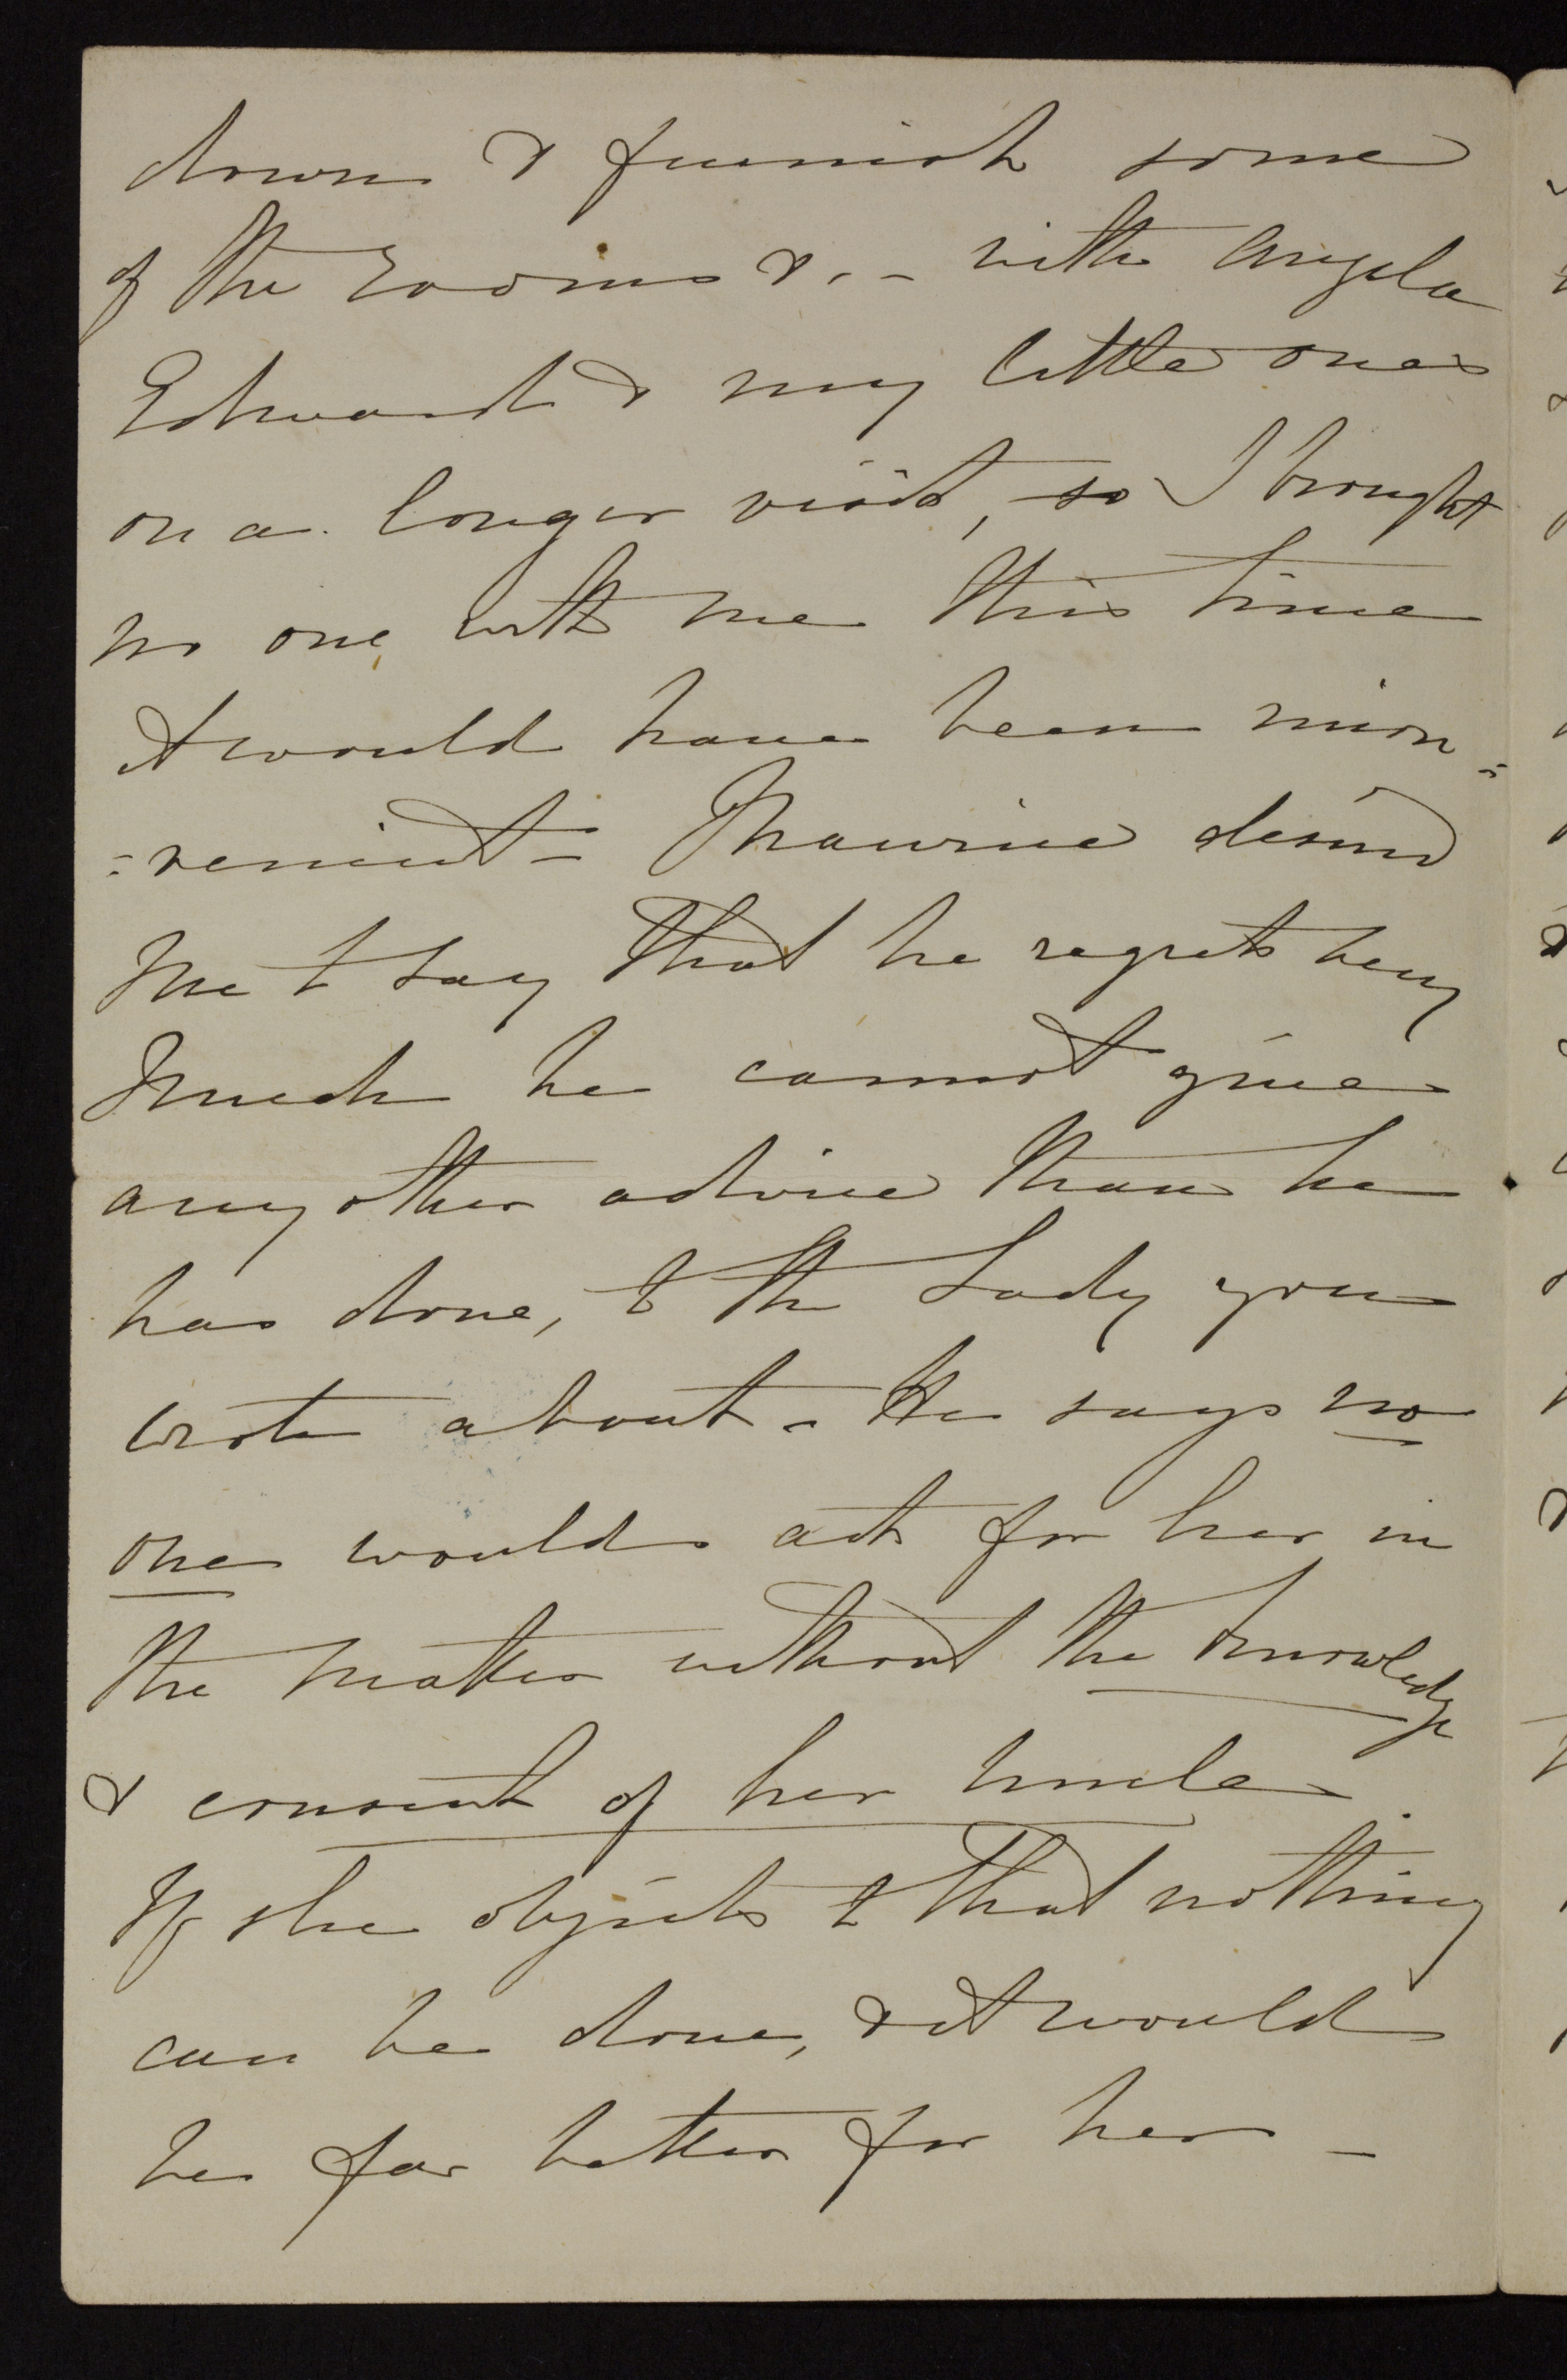 down & furnish some
of the rooms &. - with Angela
Edward & my little ones
on a longer visit, so I brought
no one with me this time
it would have been incon=
=venient - Maurice desired
me to say that he regrets very
much he cannot give
any other advice than he
has done, to the Lady you
wrote about - He says no
one would act for her in
the matter without the knowledge
& consent of her Uncle.
If she objects to that nothing
can be done, & it would
be far better for her -